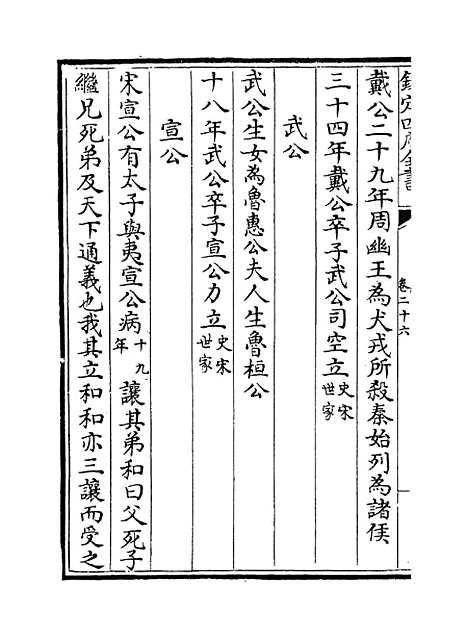 欽定四庫全書
卷二十六
戴公二十九年周幽王為犬戎所殺秦始列為諸侯
三十四年戴公卒子武公司空立史宋世家
武公
武公生女為魯惠公夫人生魯桓公
十八年武公卒子宣公力立史宋世家
宣公
宋宣公有太子與夷宣公病十九年讓其弟和曰父死子
繼兄死弟及天下通義也我其立和和亦三讓而受之